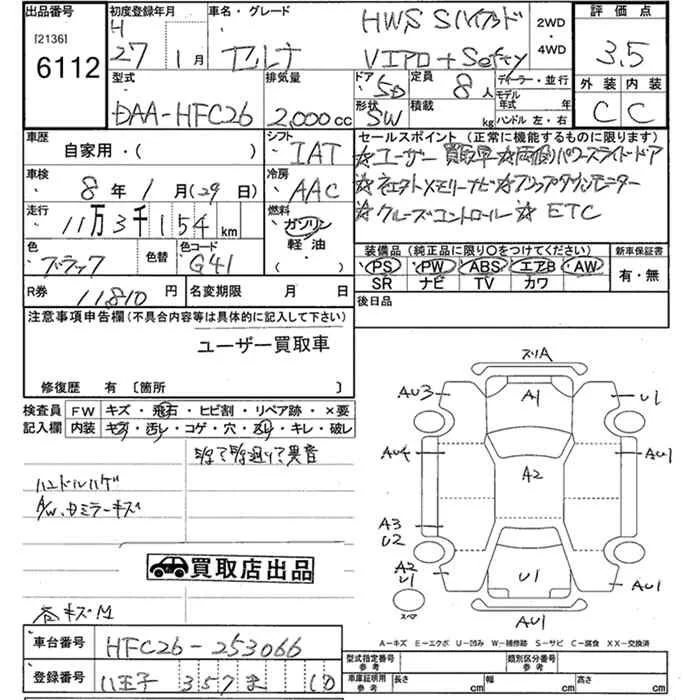 出品番号 初度登録年月 車名・グレード 評価点
[2136]
6112
H
27 1月
セレナ
HWS Sハイブリッド
VIPロ+Safty
2WD
・
4WD
3.5
外装 内装
C C
型式 排気量 ドア 定員 ディーラー・並行
DAA-HFC26 2,000cc 5D 8人
モデル年式 年
形状 積載 ハンドル 左・右
SW kg
車歴 シフト セールスポイント(正常に機能するものに限ります)
自家用・( ) IAT
☆ユーザー買取車☆両側パワースライドドア
車検 冷房
8年1月(29日) AAC
☆純正メモリーナビ☆フリップダウンモニター
走行 燃料
11万3千154km ガソリン
軽油
・
( )
☆クルーズコントロール ☆ETC
色 色替 色コード
ブラック G41
装備品(純正品に限り○をつけてください) 新車保証書
PS PW ABS エアB AW
SR ナビ TV カワ
有・無
R券 11,810円 名変期限 月 日
後日品
注意事項申告欄(不具合内容等は具体的に記入して下さい)
ユーザー買取車
修復歴 有〔箇所 〕
検査員 FW キズ・飛石・ヒビ割・リペア跡・×要
記入欄 内装 キズ・汚レ・コゲ・穴・スレ・キレ・破レ
ハンドルハゲ
A/W、ドミラーキズ
買取店出品
キズM
スリA
AU3 A1 U1
AU4 A2 AU1
A3
U2
A2
U1 U1 AU1
スペア
AU1
A-キズ E-エクボ U-凹み W-補修跡 S-サビ C-腐食 XX-交換済
車台番号 HFC26-253066
登録番号 八王子 357 ま
型式指定番号 参考 類別区分番号 参考
車庫証明用 参考 長さ cm 幅 cm 高さ cm